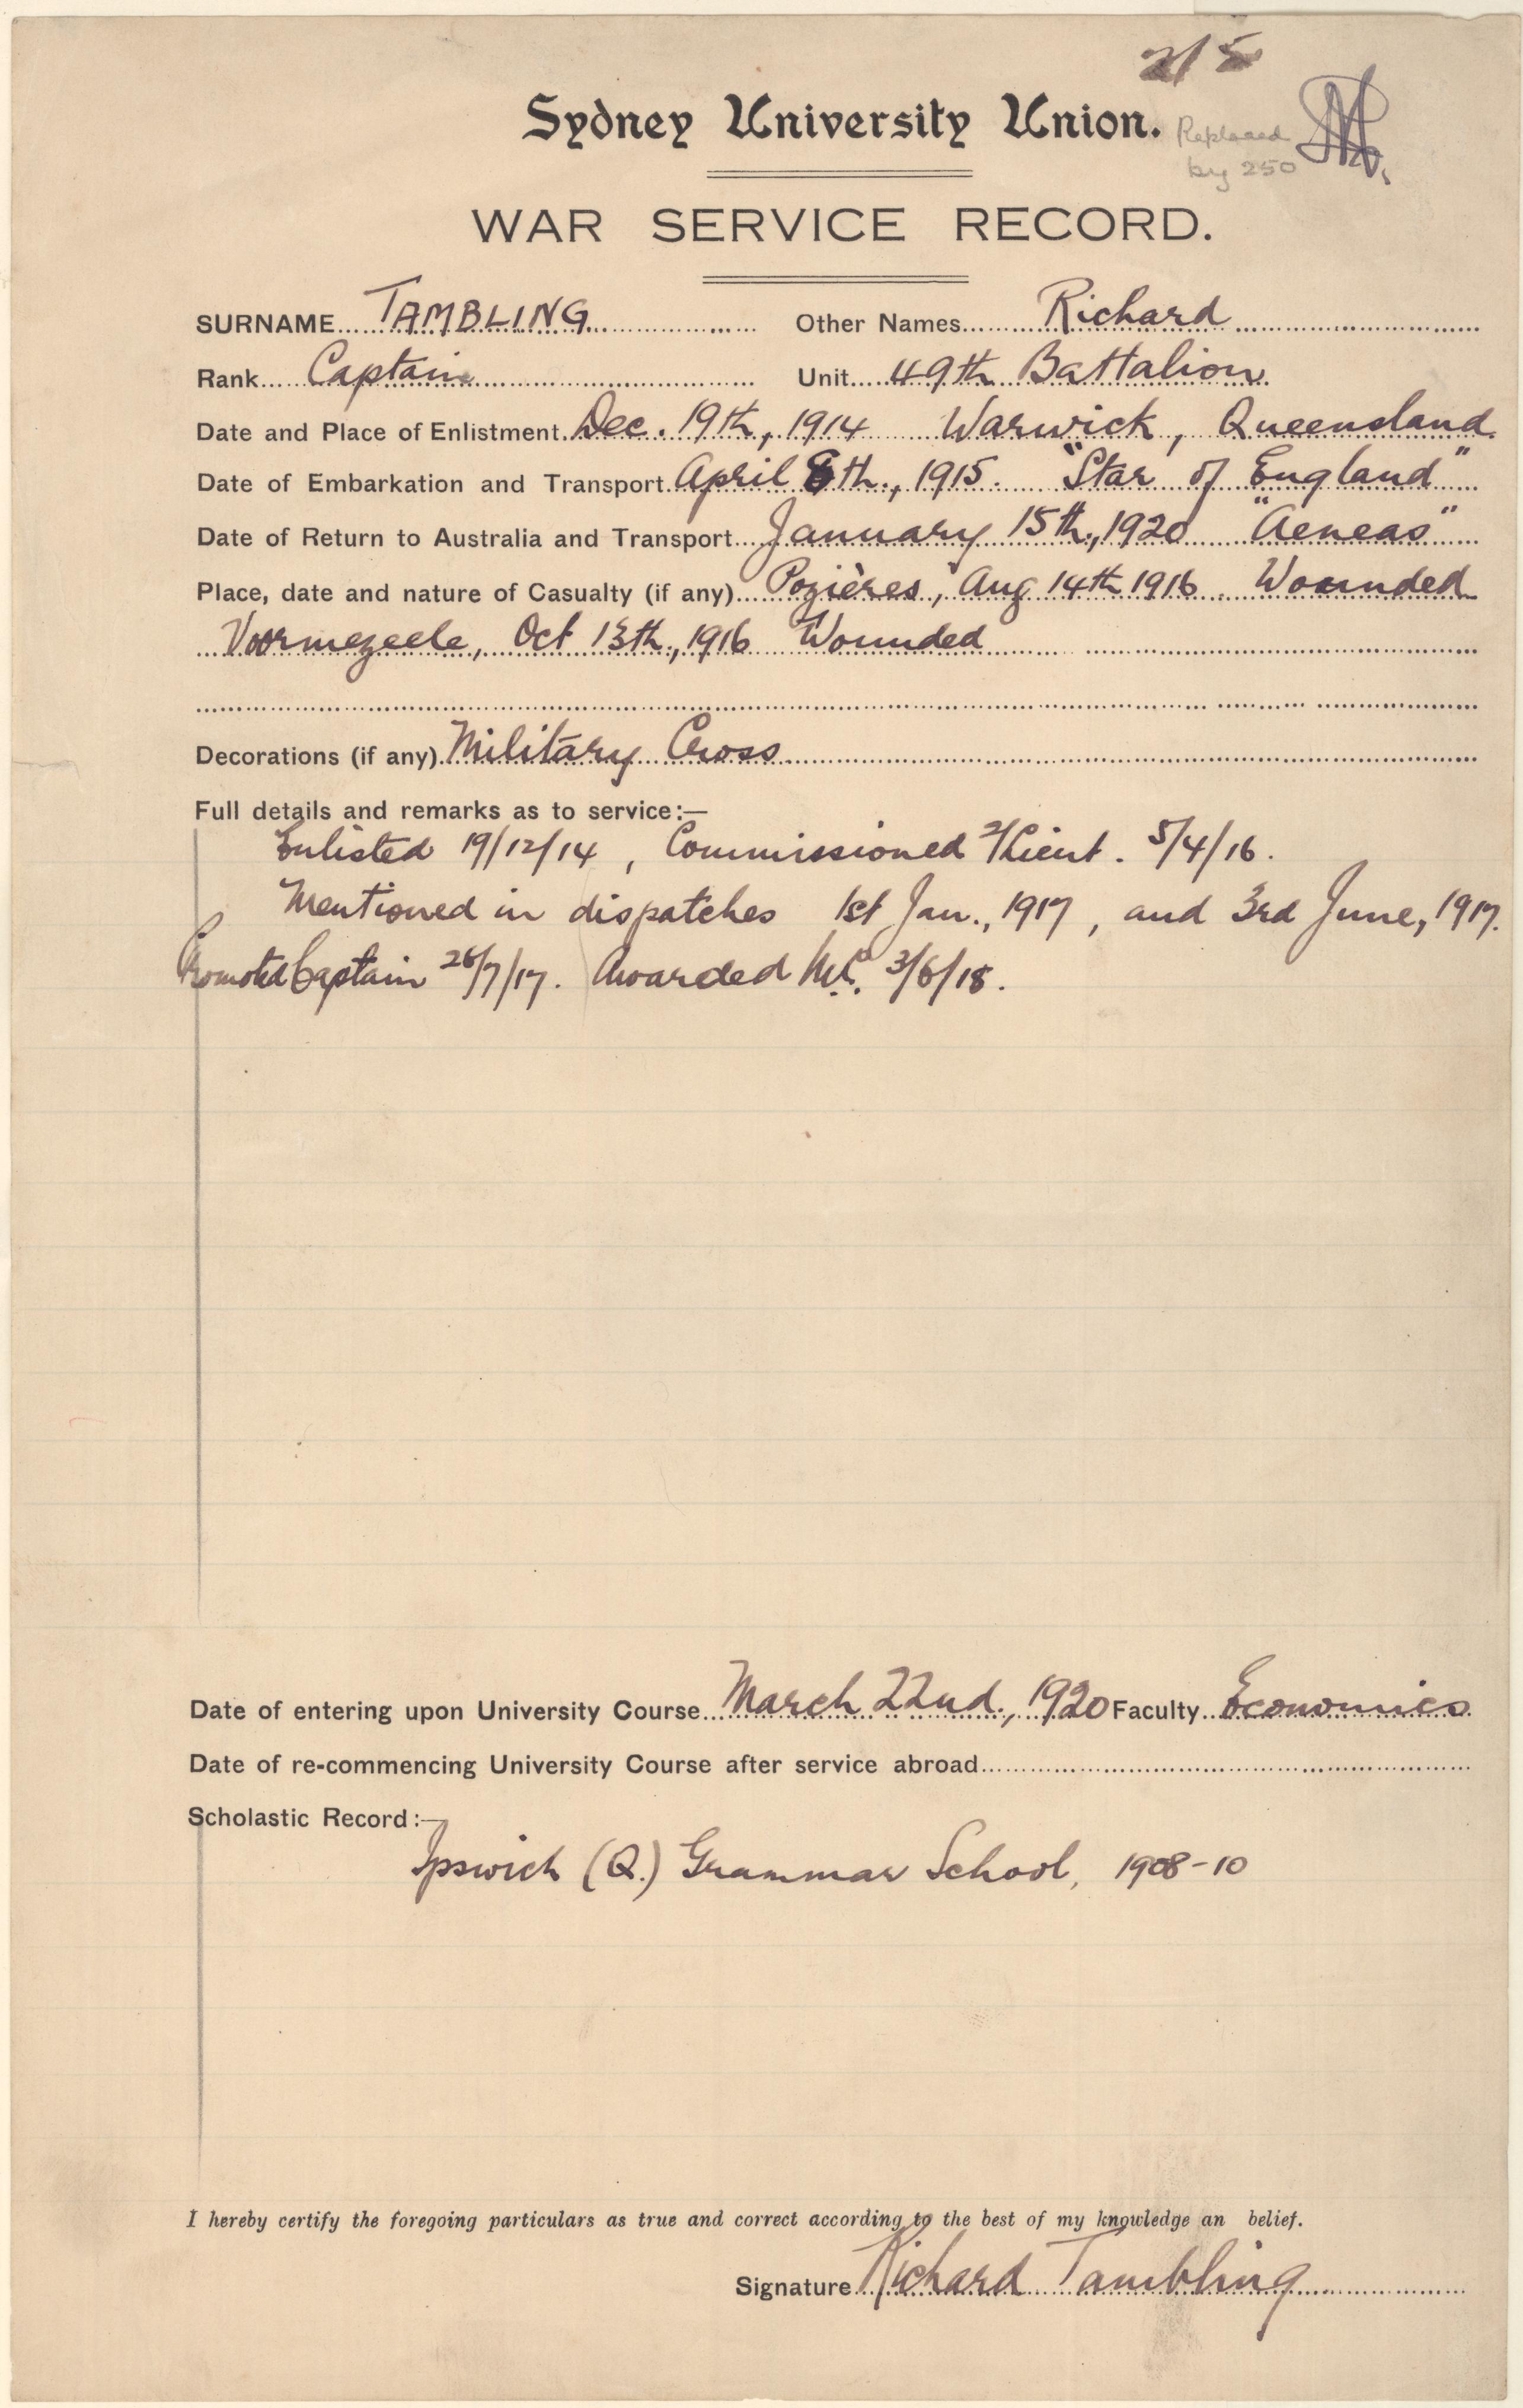 2/5
Sydney University Union.
Replaced
by 250
WAR SERVICE RECORD.
SURNAME TAMBLING Other Names Richard
Rank Captain Unit 49th Battalion
Date and Place of Enlistment Dec. 19th, 1914 Warwick, Queensland
Date of Embarkation and Transport April 8th., 1915. "Star of England"
Date of Return to Australia and Transport January 15th., 1920 "Aeneas"
Place, date and nature of Casualty (if any) Pozières, Aug 14th 1916. Wounded
Voormezeele, Oct 13th., 1916 Wounded
Decorations (if any) Military Cross
Full details and remarks as to service:—
Enlisted 19/12/14, Commissioned 2/Lieut. 5/4/16.
Mentioned in dispatches 1st Jan., 1917, and 3rd June, 1917.
Promoted Captain 26/7/17. Awarded M.C. 3/6/18.
Date of entering upon University Course March 22nd., 1920 Faculty Economics
Date of re-commencing University Course after service abroad
Scholastic Record:—
Ipswich (Q.) Grammar School, 1908-10
I hereby certify the foregoing particulars as true and correct according to the best of my knowledge an belief.
Signature Richard Tambling